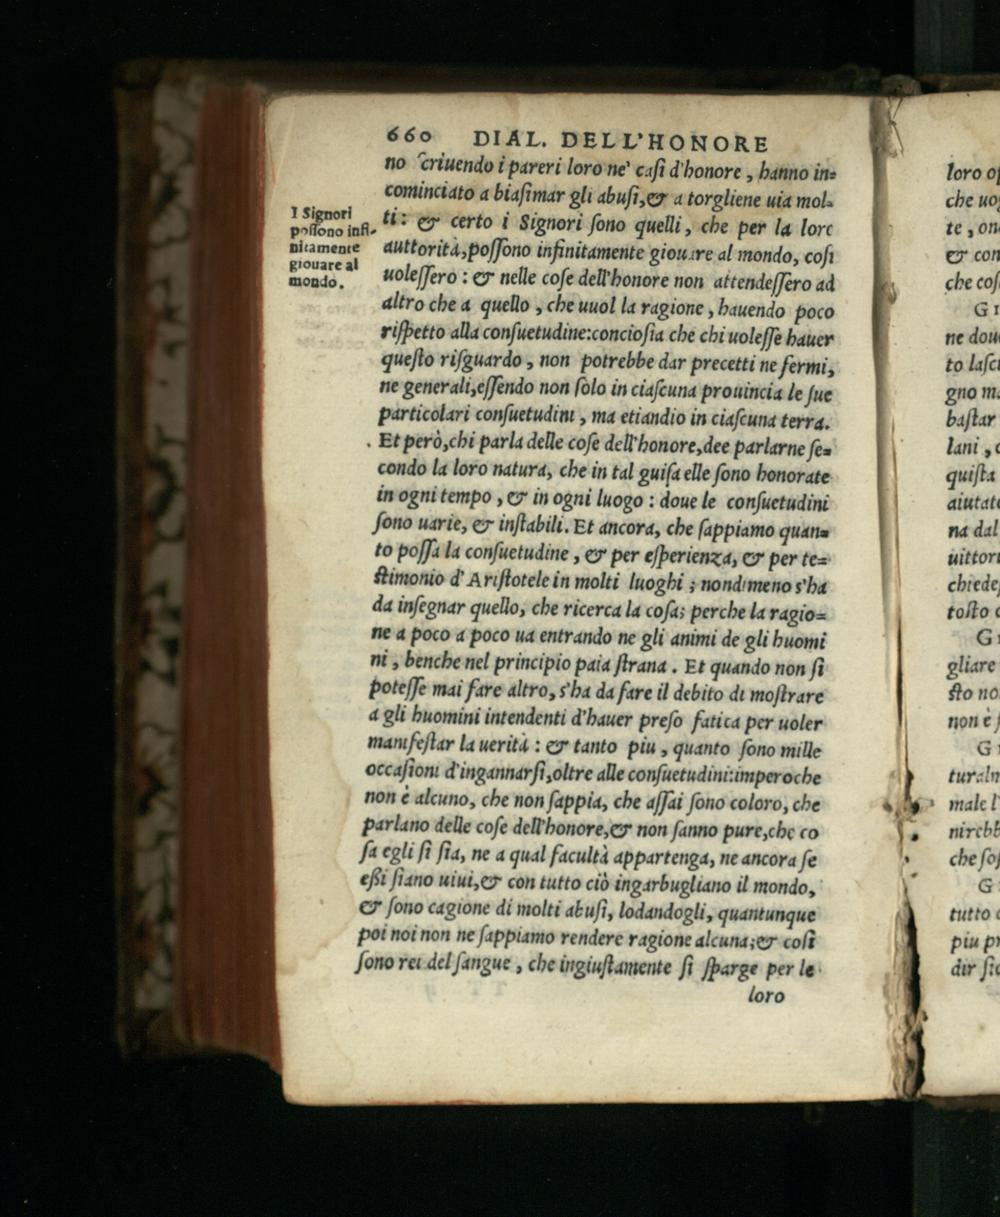 660 DIAL. DELL'HONORE
no ſcriuendo i pareri loro ne' caſi d'honore, hanno in=
cominciato a biaſimar gli abuſi,& a torgliene uia mol=
ti: & certo i Signori ſono quelli, che per la loro
auttorità,poſſono infinitamente giouare al mondo, coſi
uoleſſero: & nelle coſe dell'honore non attendeſſero ad
altro che a quello, che uuol la ragione, hauendo poco
riſpetto alla conſuetudine:concioſia che chi uoleſſe hauer
queſto riſguardo, non potrebbe dar precetti ne fermi,
ne generali,eſſendo non ſolo in ciaſcuna prouincia le ſue
particolari conſuetudini, ma etiandio in ciaſcuna terra.
Et però,chi parla delle coſe dell'honore,dee parlarne ſe=
condo la loro natura, che in tal guiſa elle ſono honorate
in ogni tempo, & in ogni luogo: doue le conſuetudini
ſono uarie, & inſtabili. Et ancora, che ſappiamo quan=
to poſſa la conſuetudine, & per eſperienza, & per te=
ſtimonio d'Ariſtotele in molti luoghi; nondimeno s'ha
da inſegnar quello, che ricerca la coſa; perche la ragio=
ne a poco a poco ua entrando ne gli animi de gli huomi
ni, benche nel principio paia ſtrana. Et quando non ſi
poteſſe mai fare altro, s'ha da fare il debito di moſtrare
a gli huomini intendenti d'hauer preſo fatica per uoler
manifeſtar la uerità: & tanto piu, quanto ſono mille
occaſioni d'ingannarſi,oltre alle conſuetudini:imperoche
non è alcuno, che non ſappia, che aſſai ſono coloro, che
parlano delle coſe dell'honore,& non ſanno pure,che co
ſa egli ſi ſia, ne a qual facultà appartenga, ne ancora ſe
eßi ſiano uiui,& con tutto ciò ingarbugliano il mondo,
& ſono cagione di molti abuſi, lodandogli, quantunque
poi noi non ne ſappiamo rendere ragione alcuna;& coſi
ſono rei del ſangue, che ingiuſtamente ſi ſparge per le
loro
I Signori
poſſono infi-
nitamente
giouare al
mondo.
loro
che
te,
& con
che
G
ne
to
gno
baſtar
lani,
quiſta
na dal
toſto
G
gliare
ſto
non è
G
male l'
G
tutto
piu
dir